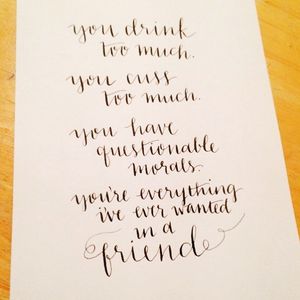 you drink
too much.
you cuss
too much.
you have
questionable
morals.
you're everything
i've ever wanted
in a
friend